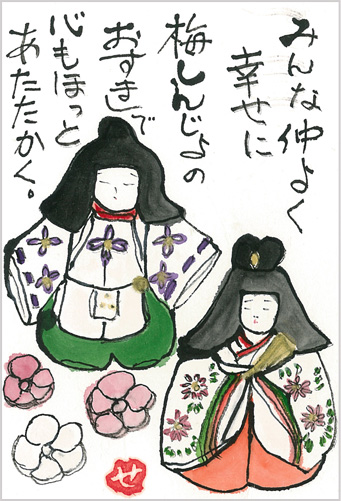 みんな仲よく
幸せに
梅しんじょの
おすましで
心もほっと
あたたかく。
せ